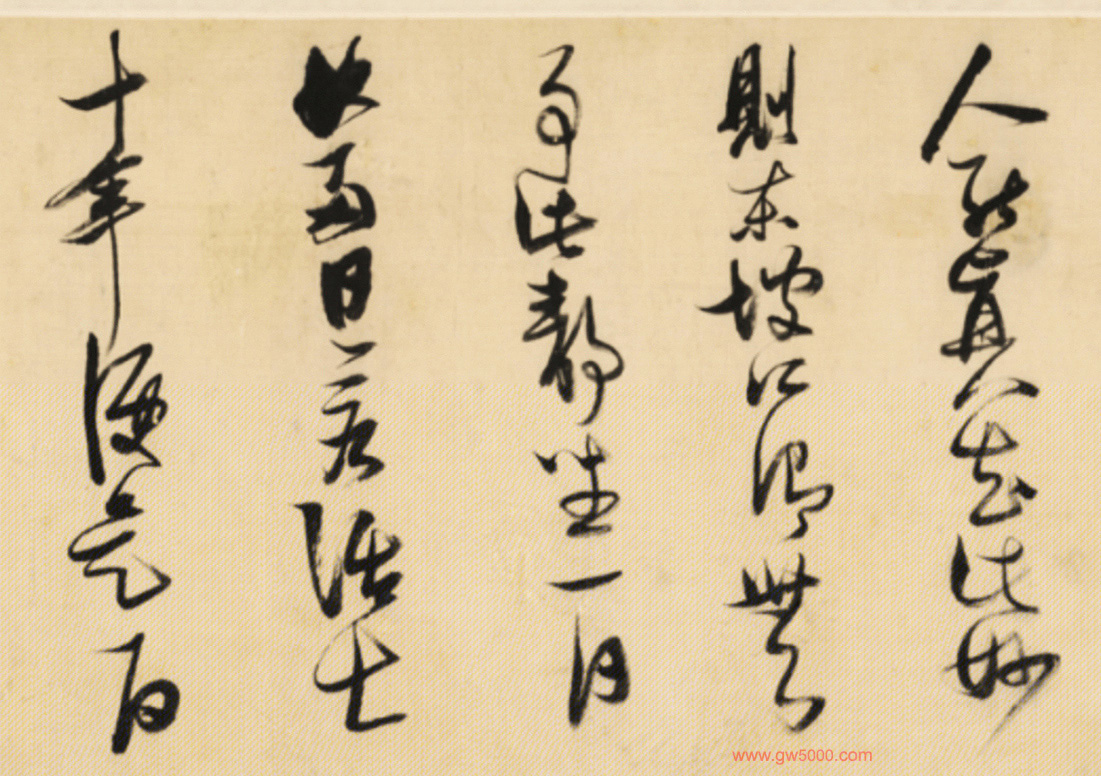 人能真知此妙
則東坡所謂無
事此靜坐一日
如兩日若活七
十年便是百
www.gw5000.com